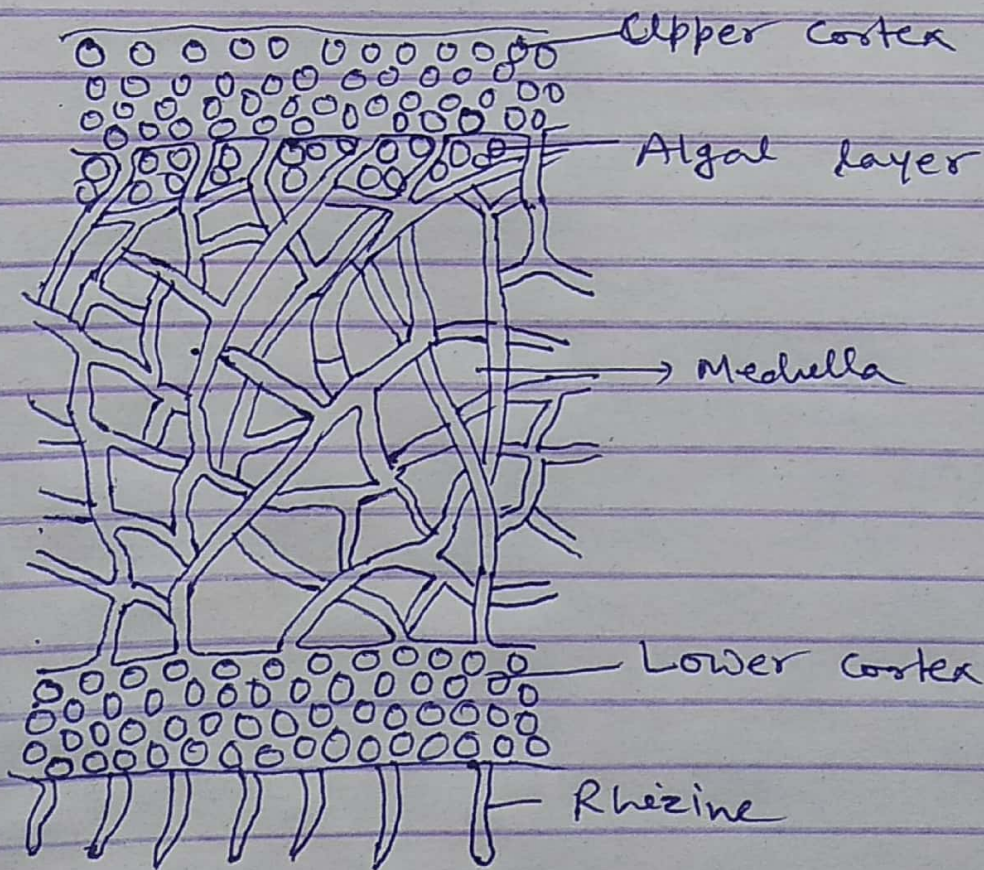 Upper cortex
Algal layer
Medulla
Lower cortex
Rhizine